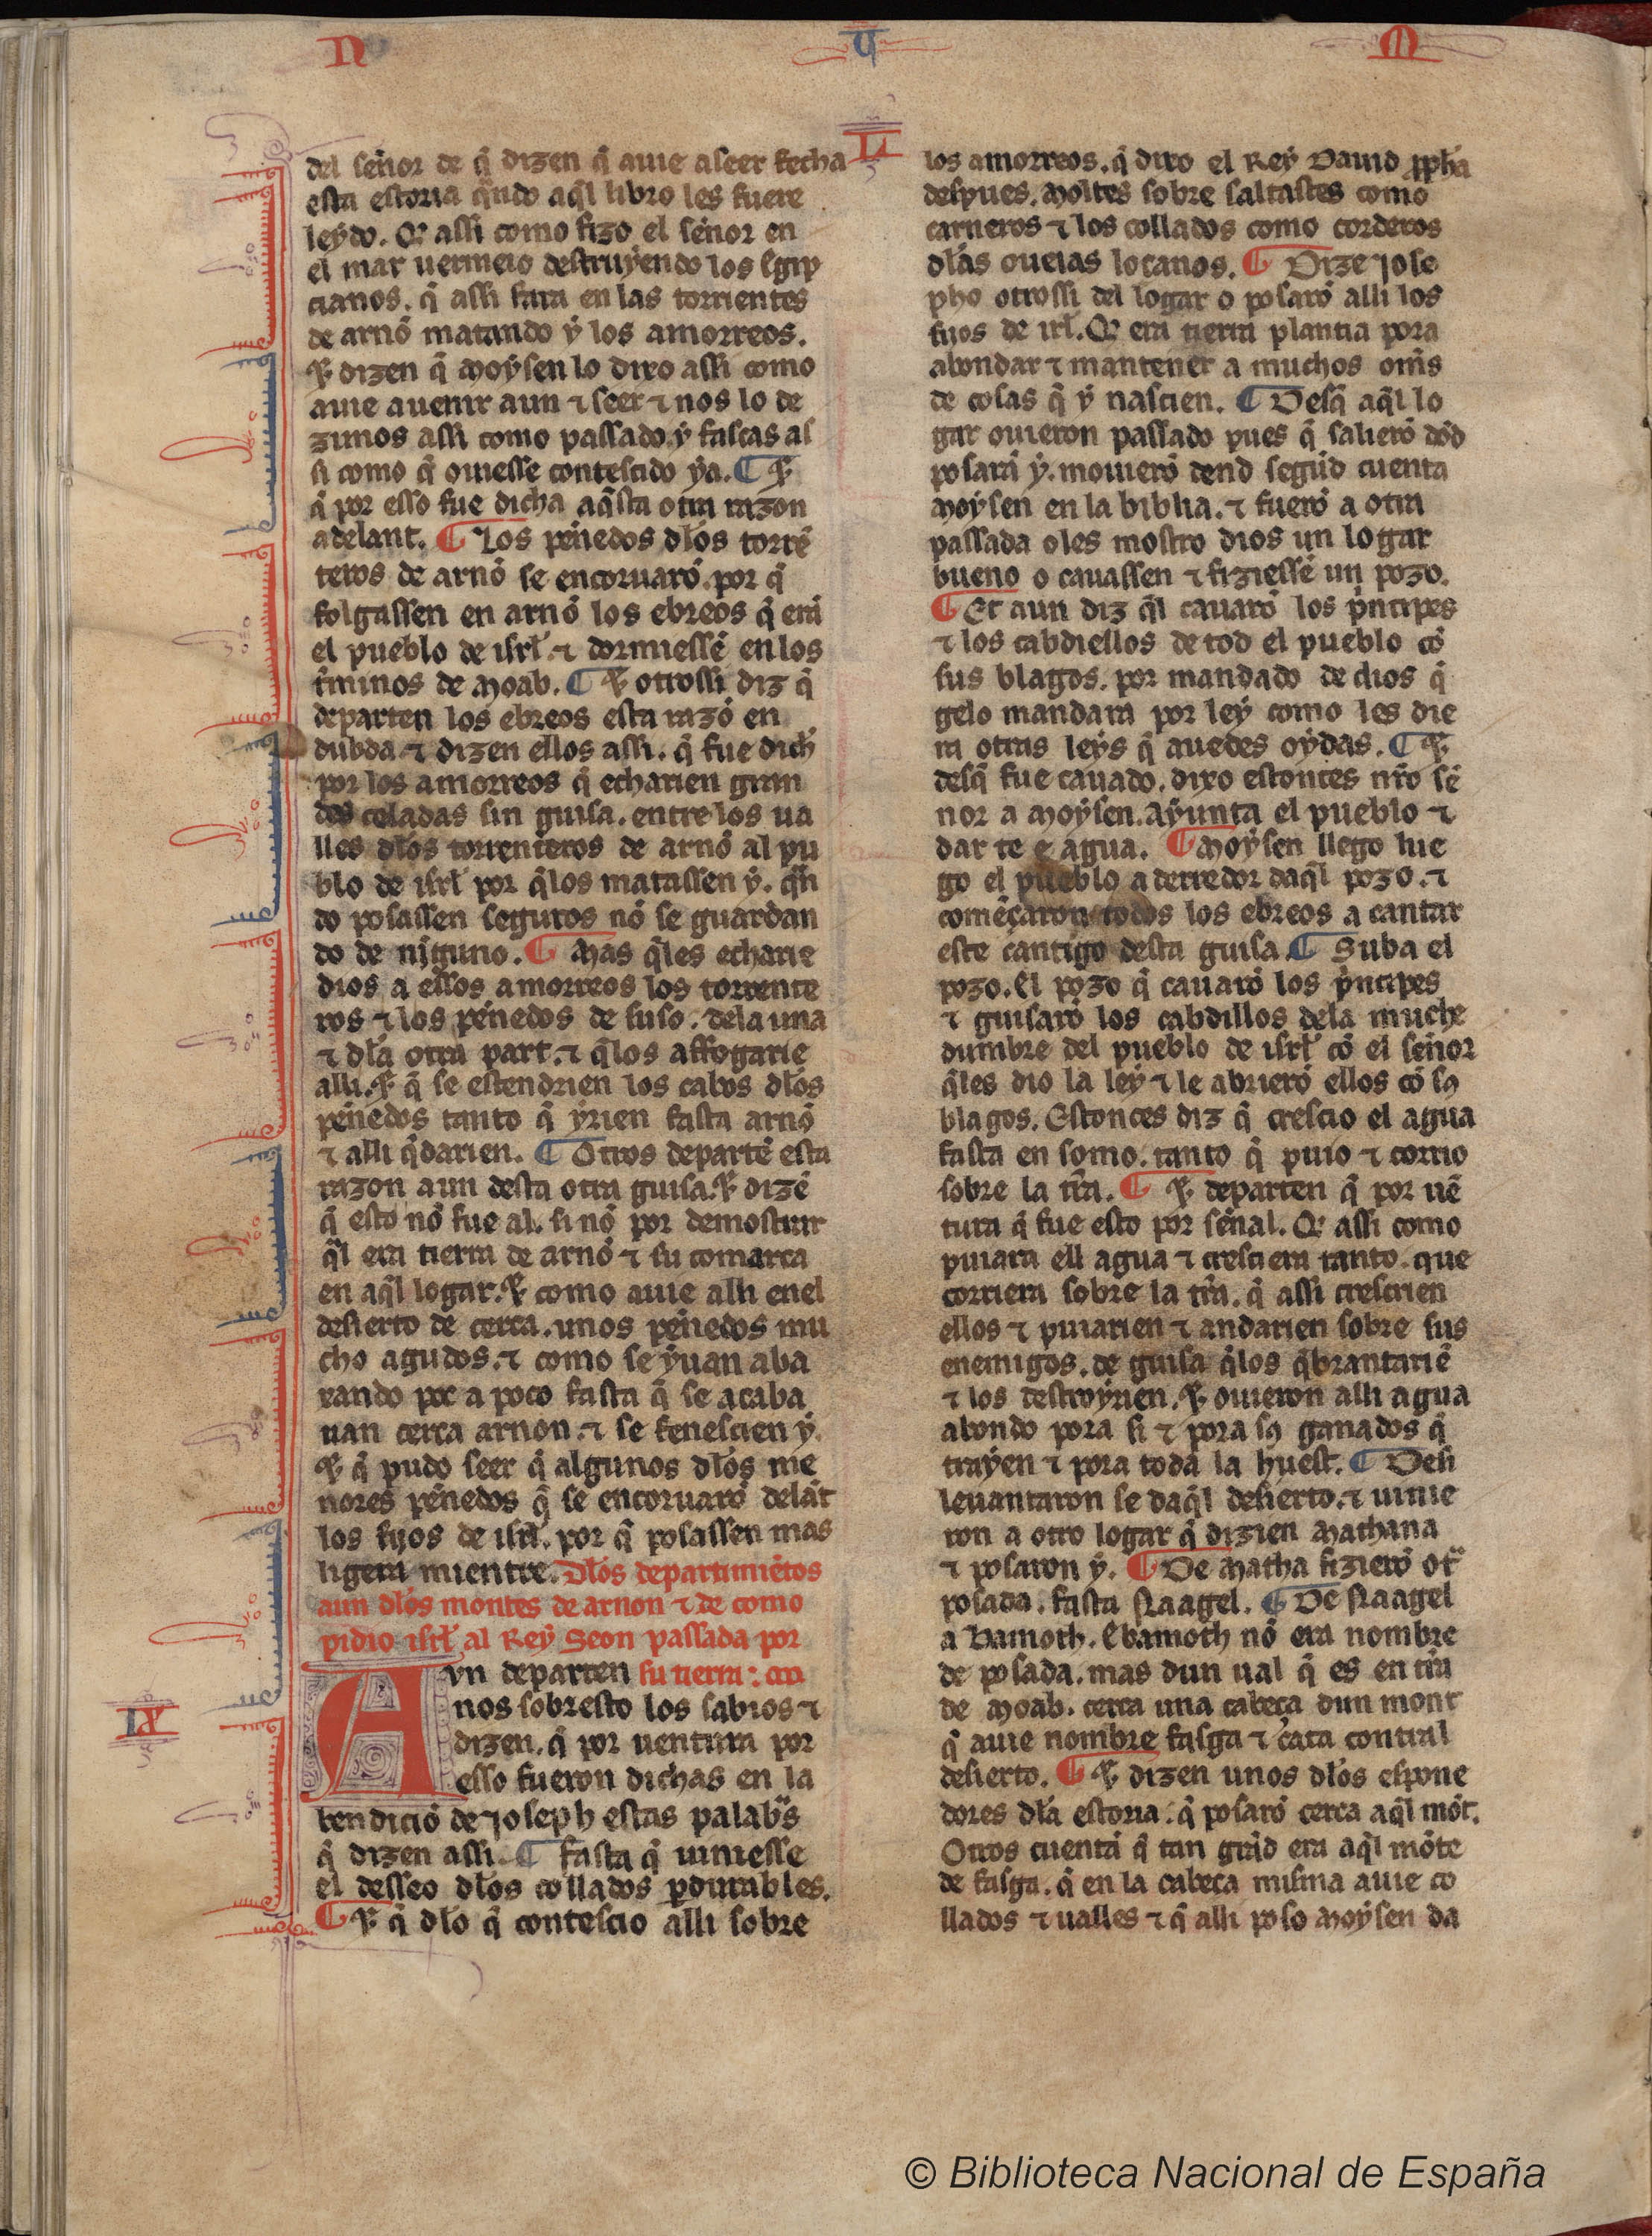 N U M
L
del señor de q̃ dizen q̃ auie a seer fecha
esta estoria q̃ndo aq̃l libro les fuere
leydo. Q̃ assi como fizo el señor en
el mar uermeio destruyendo los Egip
cianos. q̃ assi fara en las torrientes
de arnõ matando y los amorreos.
⁊ dizen q̃ Moysen lo dixo assi como
auie auenir aun ⁊ seer ⁊ nos lo de
zimos assi como passado. y fascas as
si como q̃ ouiesse contescido ya. ¶ ⁊
q̃ por esso fue dicha aq̃sta otra razon
adelant. ¶ Los penedos dłos torrẽ
teros de arnõ se encoruarõ. por q̃
folgassen en arnõ los ebreos q̃ erã
el pueblo de isrł. ⁊ dormiessẽ en los
t̃minos de Moab. ¶ ⁊ otrossi diz q̃
departen los ebreos esta razõ en
dubda ⁊ dizen ellos assi. q̃ fue dich̃
por los amorreos q̃ echarien gran
des celadas sin guisa. entre los ua
lles dłos torrenteros de arnõ al pu
blo de isrł por q̃los matassen y. q̃n
do posassen seguros nõ se guardan
do de ninguno. ¶ Mas q̃les echarie
dios a essos amorreos los torrente
ros ⁊ los penedos de suso. dela una
⁊ dła otra part. ⁊ q̃los affogarie
alli. ⁊ q̃ se estendrien los cabos dłos
penedos tanto q̃ yrien fasta arnõ
⁊ alli q̃darien. ¶ Otros departẽ esta
razon aun desta otra guisa. ⁊ dizẽ
q̃ esto nõ fue al. si nõ por demostrar
q̃l era tierra de arnõ ⁊ su comarca
en aq̃l logar. ⁊ como auie alli enel
desierto de cerca. unos penedos mu
cho agudos. ⁊ como se yuan aba
xando poc a poco fasta q̃ se acaba
uan cerca arnon. ⁊ se fenescien y.
⁊ q̃ pudo seer q̃ algunos dłos me
nores penedos q̃ se encoruarõ delãt
los fijos de isrł. por q̃ posassen mas
ligera mientre. Dłos departimiẽtos
aun dłos montes de arnon ⁊ de como
pidio isrł al Rey Seon passada por
Avn departen su tierra: an
IX
nos sobresto los sabios ⁊
dizen. q̃ por uentura por
esso fueron dichas en la
bendiciõ de Joseph estas palabᵃs
q̃ dizen assi. ¶ fasta q̃ uiniesse
el desseo dłos collados ꝑdurables.
¶ ⁊ q̃ dło q̃ contescio alli sobre
los amorreos. q̃ dixo el Rey Dauid ꝓph̃a
despues. Montes sobre saltastes como
carneros ⁊ los collados como corderos
dłas oueias loçanos. ¶ Dize Jose
pho otrossi del logar o posarõ alli los
fijos de isrł. Q̃ era tierra plantia pora
abondar ⁊ mantener a muchos om̃s
de cosas q̃ y nascien. ¶ Desq̃ aq̃l lo
gar ouieron passado pues q̃ salierõ dõd
posarã y. mouierõ dend segũd cuenta
Moysen en la biblia. ⁊ fuerõ a otra
passada o les mostro dios un logar
bueno o cauassen ⁊ fiziessẽ un pozo.
¶ Et aun diz q̃l cauarõ los p̃ncipes
⁊ los cabdiellos de tod el pueblo cõ
sus blagos. por mandado de dios q̃
gelo mandara por ley como les die
ra otras leys q̃ auedes oydas. ¶ ⁊
desq̃ fue cauado. dixo estonces nr̃o sẽ
nor a Moysen. Ayunta el pueblo ⁊
dar te e agua. ¶ Moysen llego lue
go el pueblo a derredor daq̃l pozo. ⁊
comẽçaron todos los ebreos a cantar
este cantigo desta guisa ¶ Suba el
pozo. El pozo q̃ cauarõ los p̃ncipes
⁊ guisarõ los cabdillos dela muche
dumbre del pueblo de isrł cõ el señor
q̃les dio la ley ⁊ le abrierõ ellos cõ sꝯ
blagos. Estonces diz q̃ crescio el agua
fasta en somo. tanto q̃ puio ⁊ corrio
sobre la tr̃ra. ¶ ⁊ departen q̃ por uẽ
tura q̃ fue esto por señal. Q̃ assi como
puiara ell agua ⁊ cresciera tanto. que
corriera sobre la tr̃ra. q̃ assi crescrien
ellos ⁊ puiarien ⁊ andarien sobre sus
enemigos. de guisa q̃los q̃brantariẽ
⁊ los destroyrien. ⁊ ouieron alli agua
abondo pora si ⁊ pora sꝯ ganados q̃
trayen ⁊ pora toda la huest. ¶ Desi
leuantaron se daq̃l desierto. ⁊ uinie
ron a otro logar q̃ dizien Mathana
⁊ posaron y. ¶ De Matha fizierõ otᵃ
posada. fasta Naagel. ¶ De Naagel
a Bamoth. Ebamoth nõ era nombre
de posada. mas dun ual q̃ es en tr̃ra
de Moab. cerca una cabeça dun mont
q̃ auie nombre fasga ⁊ cata contral
desierto. ¶ ⁊ dizen unos dłos espone
dores dła estoria. q̃ posarõ cerca aq̃l mõt.
Otros cuentã q̃ tan grãd era aq̃l mõte
de fasga. q̃ en la cabeça misma auie co
llados ⁊ ualles ⁊ q̃ alli poso Moysen da
© Biblioteca Nacional de España